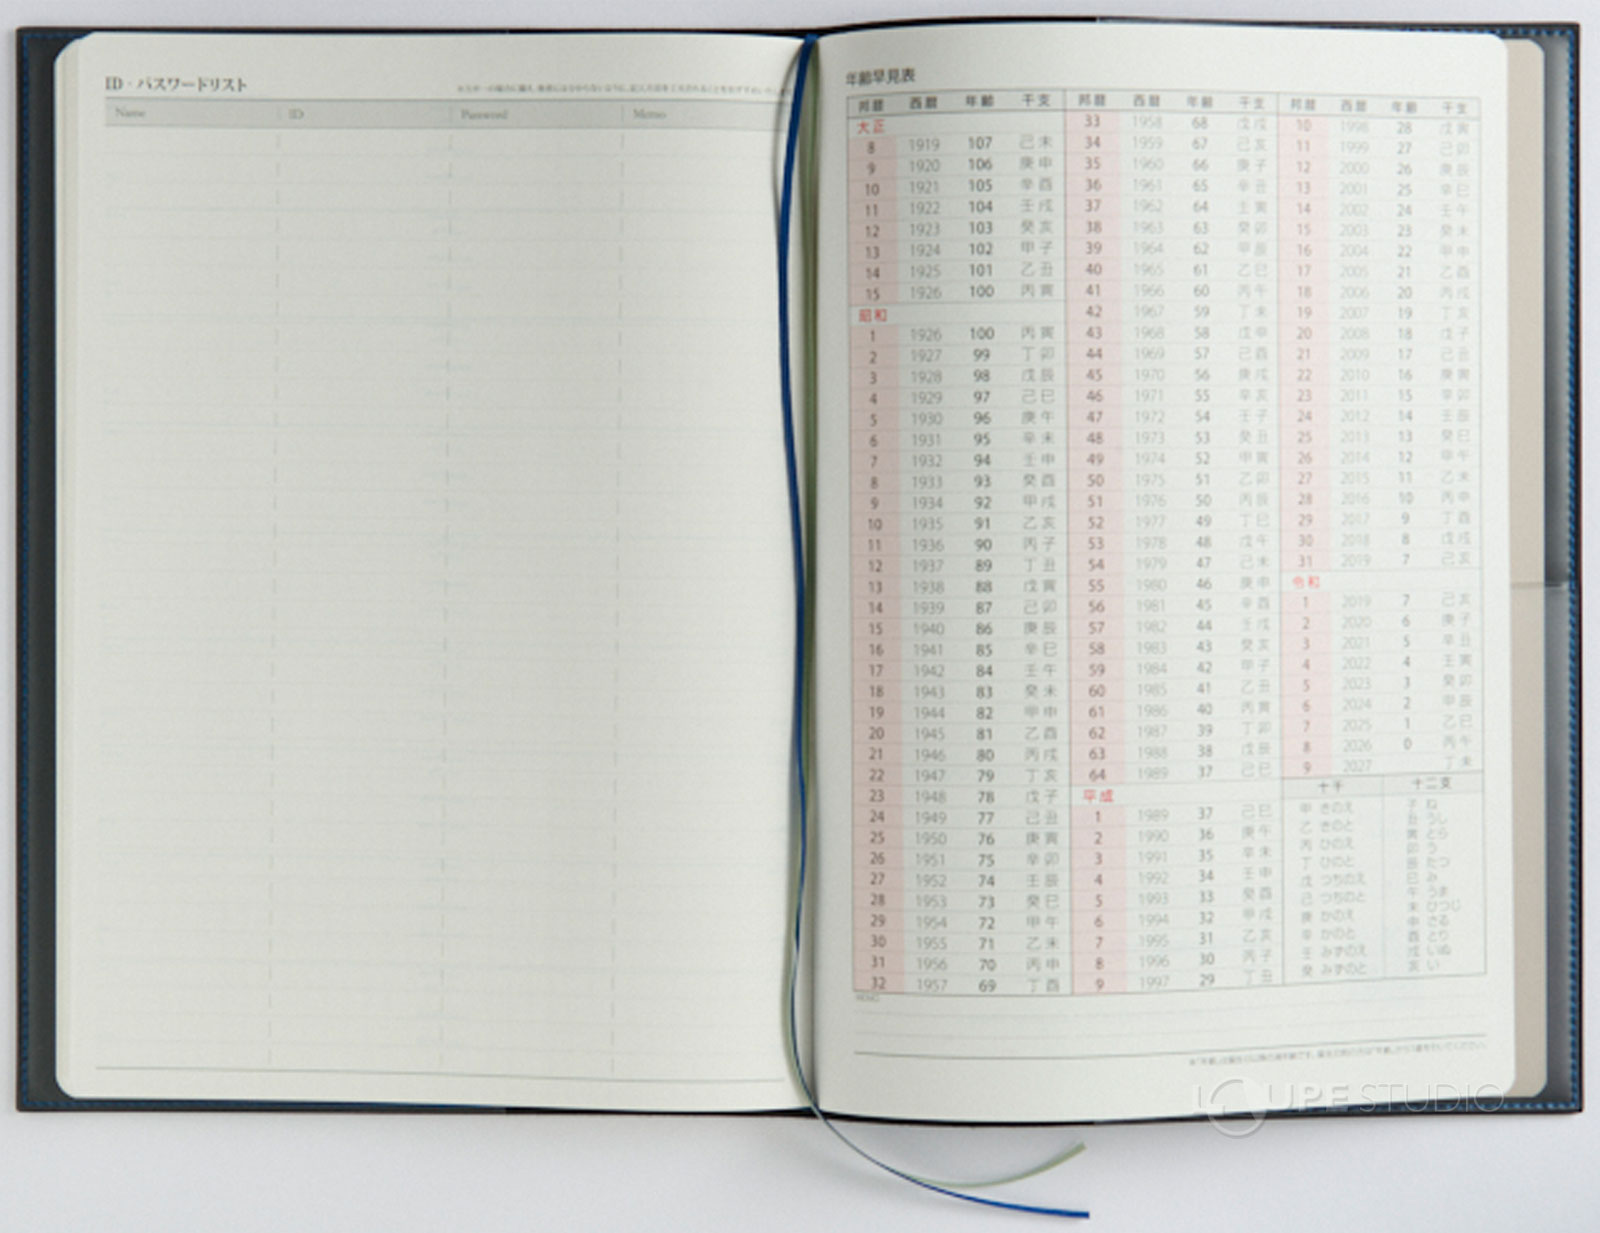 ID・パスワードリスト
Name ID Password Memo
年齢早見表
邦暦 西暦 年齢 干支
大正
8 1919 107 己未
9 1920 106 庚申
10 1921 105 辛酉
11 1922 104 壬戌
12 1923 103 癸亥
13 1924 102 甲子
14 1925 101 乙丑
15 1926 100 丙寅
昭和
1 1926 100 丙寅
2 1927 99 丁卯
3 1928 98 戊辰
4 1929 97 己巳
5 1930 96 庚午
6 1931 95 辛未
7 1932 94 壬申
8 1933 93 癸酉
9 1934 92 甲戌
10 1935 91 乙亥
11 1936 90 丙子
12 1937 89 丁丑
13 1938 88 戊寅
14 1939 87 己卯
15 1940 86 庚辰
16 1941 85 辛巳
17 1942 84 壬午
18 1943 83 癸未
19 1944 82 甲申
20 1945 81 乙酉
21 1946 80 丙戌
22 1947 79 丁亥
23 1948 78 戊子
24 1949 77 己丑
25 1950 76 庚寅
26 1951 75 辛卯
27 1952 74 壬辰
28 1953 73 癸巳
29 1954 72 甲午
30 1955 71 乙未
31 1956 70 丙申
32 1957 69 丁酉
邦暦 西暦 年齢 干支
33 1958 68 戊戌
34 1959 67 己亥
35 1960 66 庚子
36 1961 65 辛丑
37 1962 64 壬寅
38 1963 63 癸卯
39 1964 62 甲辰
40 1965 61 乙巳
41 1966 60 丙午
42 1967 59 丁未
43 1968 58 戊申
44 1969 57 己酉
45 1970 56 庚戌
46 1971 55 辛亥
47 1972 54 壬子
48 1973 53 癸丑
49 1974 52 甲寅
50 1975 51 乙卯
51 1976 50 丙辰
52 1977 49 丁巳
53 1978 48 戊午
54 1979 47 己未
55 1980 46 庚申
56 1981 45 辛酉
57 1982 44 壬戌
58 1983 43 癸亥
59 1984 42 甲子
60 1985 41 乙丑
61 1986 40 丙寅
62 1987 39 丁卯
63 1988 38 戊辰
64 1989 37 己巳
平成
1 1989 37 己巳
2 1990 36 庚午
3 1991 35 辛未
4 1992 34 壬申
5 1993 33 癸酉
6 1994 32 甲戌
7 1995 31 乙亥
8 1996 30 丙子
9 1997 29 丁丑
邦暦 西暦 年齢 干支
10 1998 28 戊寅
11 1999 27 己卯
12 2000 26 庚辰
13 2001 25 辛巳
14 2002 24 壬午
15 2003 23 癸未
16 2004 22 甲申
17 2005 21 乙酉
18 2006 20 丙戌
19 2007 19 丁亥
20 2008 18 戊子
21 2009 17 己丑
22 2010 16 庚寅
23 2011 15 辛卯
24 2012 14 壬辰
25 2013 13 癸巳
26 2014 12 甲午
27 2015 11 乙未
28 2016 10 丙申
29 2017 9 丁酉
30 2018 8 戊戌
31 2019 7 己亥
令和
1 2019 7 己亥
2 2020 6 庚子
3 2021 5 辛丑
4 2022 4 壬寅
5 2023 3 癸卯
6 2024 2 甲辰
7 2025 1 乙巳
8 2026 0 丙午
9 2027 丁未
十干
甲 きのえ
乙 きのと
丙 ひのえ
丁 ひのと
戊 つちのえ
己 つちのと
庚 かのえ
辛 かのと
壬 みずのえ
癸 みずのと
十二支
子 ね
丑 うし
寅 とら
卯 う
辰 たつ
巳 み
午 うま
未 ひつじ
申 さる
酉 とり
戌 いぬ
亥 い
MEMO
LOUPE STUDIO